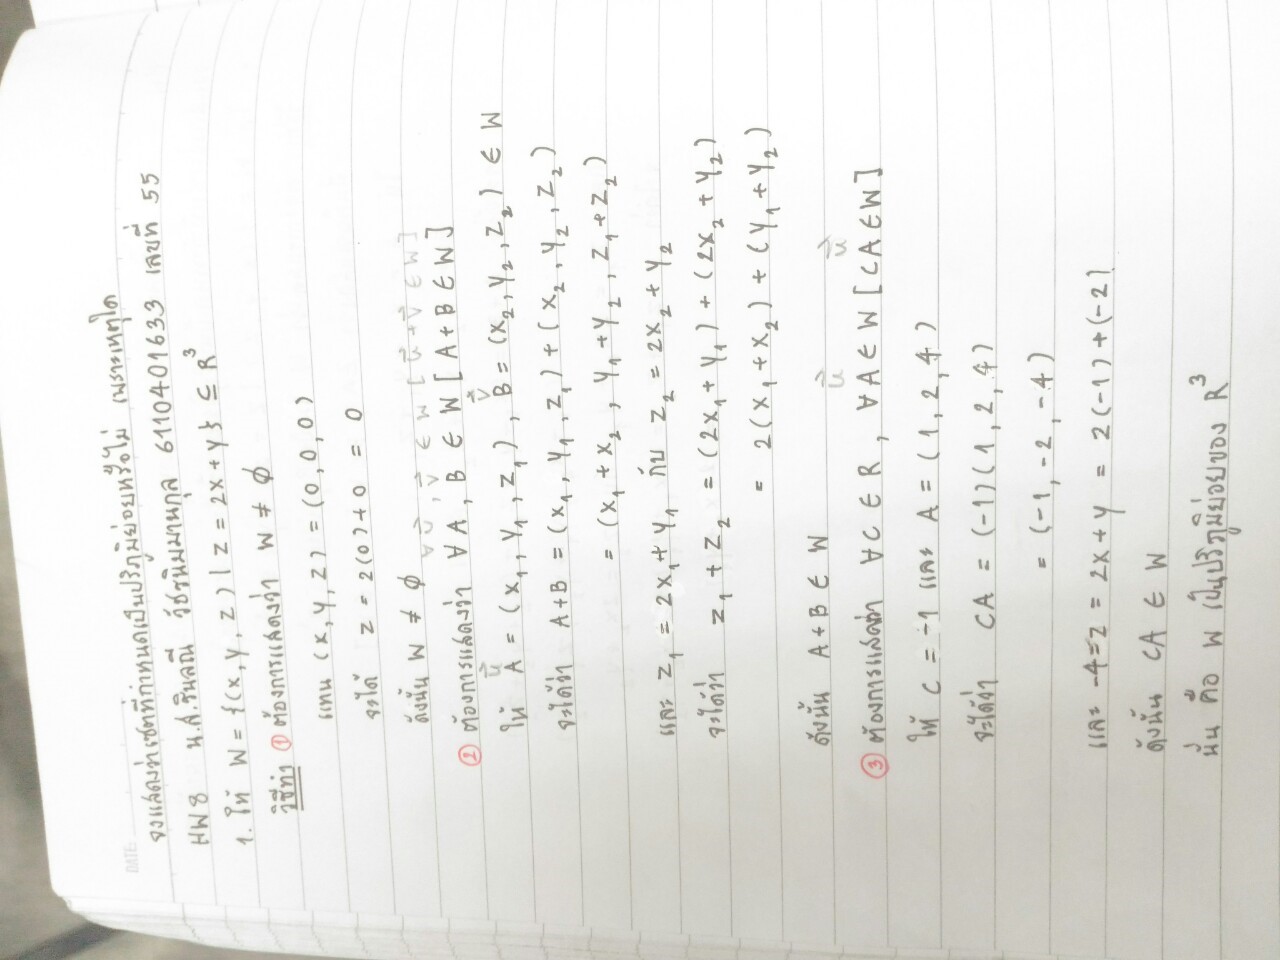 DATE:
จงแสดงว่าเซตที่กำหนดเป็นปริภูมิย่อยหรือไม่ เพราะเหตุใด
HW8 น.ส.รินลณี วัชรนิมมานกุล 6110401633 เลขที่ 55
1. ให้ W = {(x, y, z) | z = 2x + y} ⊆ R³
วิธีทำ ① ต้องการแสดงว่า W ≠ ∅
แทน (x, y, z) = (0, 0, 0)
จะได้ z = 2(0) + 0 = 0
ดังนั้น W ≠ ∅
∀ u⃗, v⃗ ∈ W [u⃗ + v⃗ ∈ W]
② ต้องการแสดงว่า ∀A, B ∈ W [A + B ∈ W]
u⃗ v⃗
ให้ A = (x₁, y₁, z₁), B = (x₂, y₂, z₂) ∈ W
จะได้ว่า A+B = (x₁, y₁, z₁) + (x₂, y₂, z₂)
= (x₁ + x₂, y₁ + y₂, z₁ + z₂)
และ z₁ = 2x₁ + y₁ กับ z₂ = 2x₂ + y₂
จะได้ว่า z₁ + z₂ = (2x₁ + y₁) + (2x₂ + y₂)
= 2(x₁ + x₂) + (y₁ + y₂)
ดังนั้น A + B ∈ W
u⃗ u⃗
③ ต้องการแสดงว่า ∀C ∈ R, ∀A ∈ W [CA ∈ W]
ให้ C = -1 และ A = (1, 2, 4)
จะได้ว่า CA = (-1)(1, 2, 4)
= (-1, -2, -4)
และ -4 = z = 2x + y = 2(-1) + (-2)
ดังนั้น CA ∈ W
นั่น คือ W เป็นปริภูมิย่อยของ R³